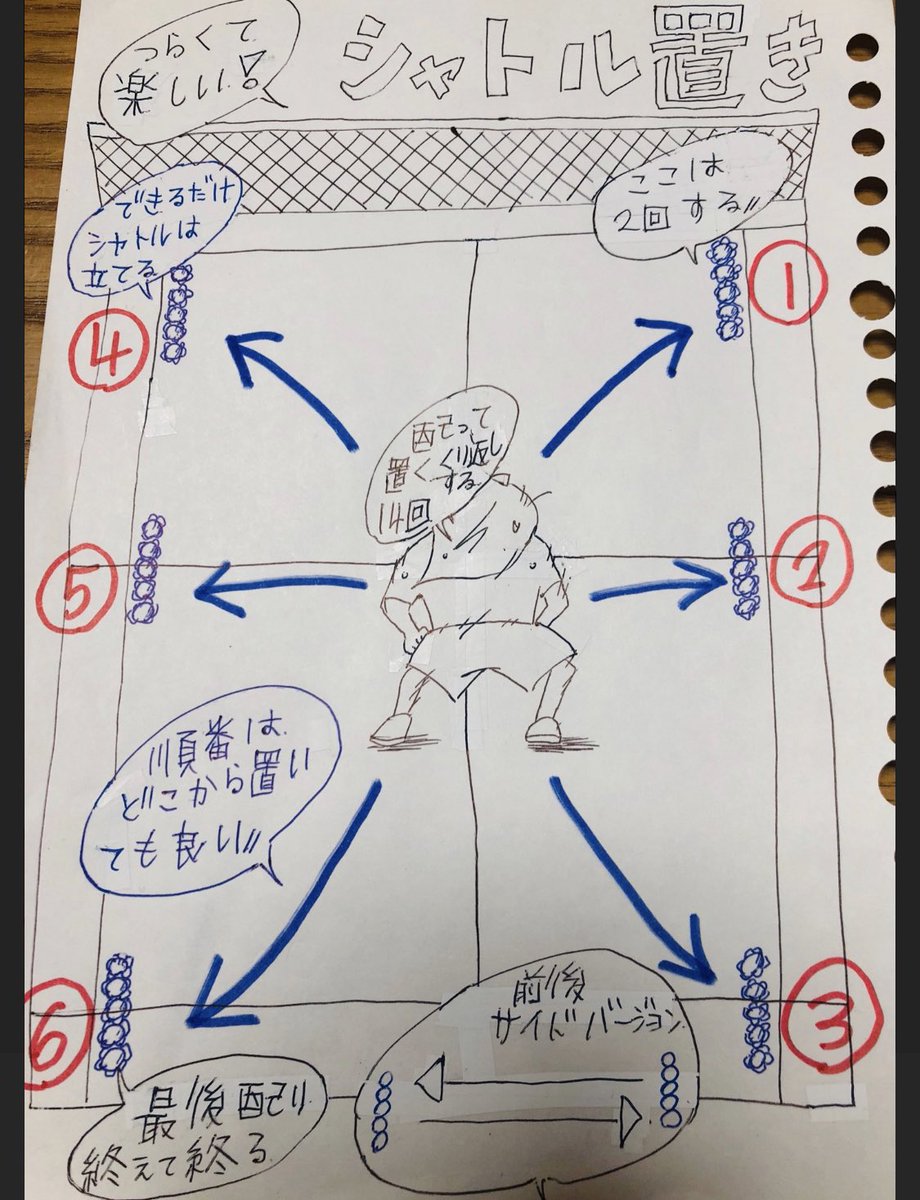 つらくて
楽しい!
シャトル置き
できるだけ
シャトルは
立てる
ここは
2回する!!
①
④
配って
置くくり返し
する
14回
⑤
②
順番は
どこから置い
ても良い!!
⑥
③
前後
サイドバージョン
最後配り
終えて終る